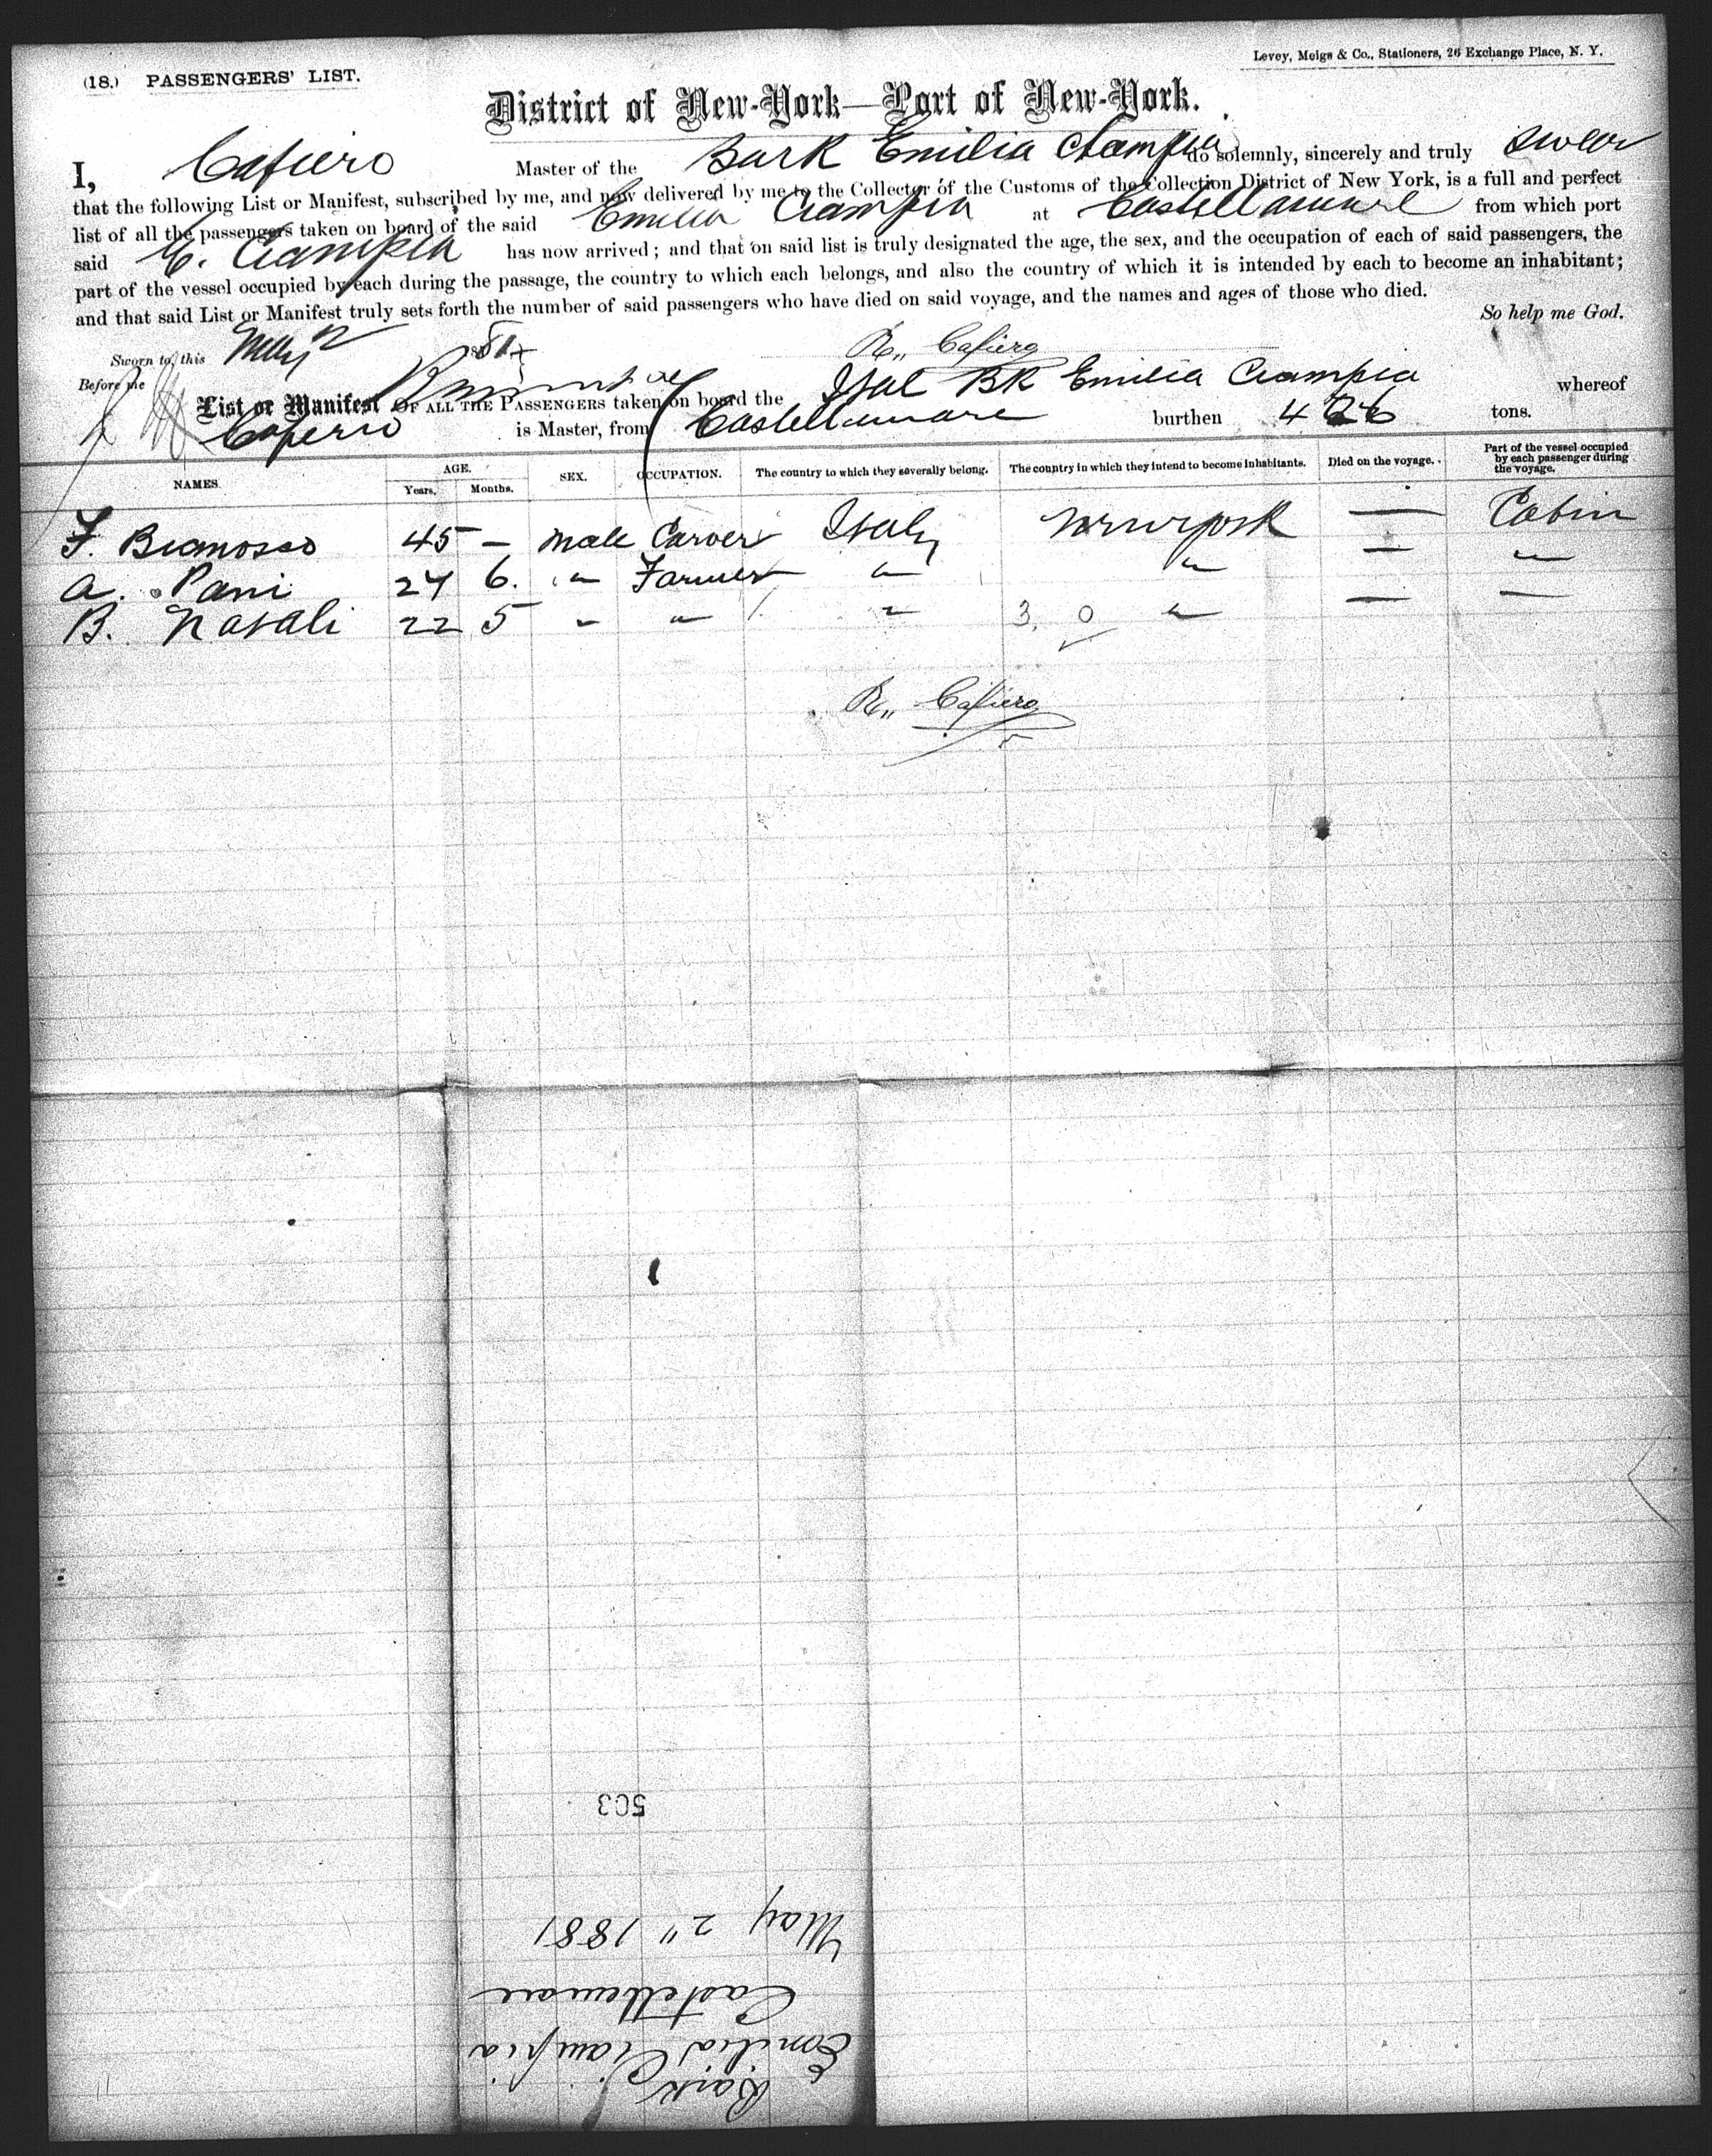 Levey, Meigs & Co., Stationers, 26 Exchange Place, N. Y.
(18.) PASSENGERS' LIST.
District of New-York—Port of New-York.
I, Cafiero Master of the Bark Emilia Ciampa do solemnly, sincerely and truly swear
that the following List or Manifest, subscribed by me, and now delivered by me to the Collector of the Customs of the Collection District of New York, is a full and perfect
list of all the passengers taken on board of the said Emilia Ciampia at Castellamare from which port
said E. Ciampia has now arrived; and that on said list is truly designated the age, the sex, and the occupation of each of said passengers, the
part of the vessel occupied by each during the passage, the country to which each belongs, and also the country of which it is intended by each to become an inhabitant;
and that said List or Manifest truly sets forth the number of said passengers who have died on said voyage, and the names and ages of those who died.
So help me God.
Sworn to, this May 2 1881 R,, Cafiero
Before me
List or Manifest OF ALL THE PASSENGERS taken on board the Ital Bk Emilia Ciampia whereof
Cafiero is Master, from Castellamare burthen tons.
NAMES. AGE. Years. Months. SEX. OCCUPATION. The country to which they severally belong. The country in which they intend to become inhabitants. Died on the voyage. Part of the vessel occupied by each passenger during the voyage.
F. Bianosso 45 — male Carver Italy New york — Cabin
A. Pani 24 6. " Farmer " " — "
B. Natali 22 5 " " / " 3. 0 " — —
R,, Cafiero
503
May 2" 1881
Castellamare
Emilia Ciampia
Bark